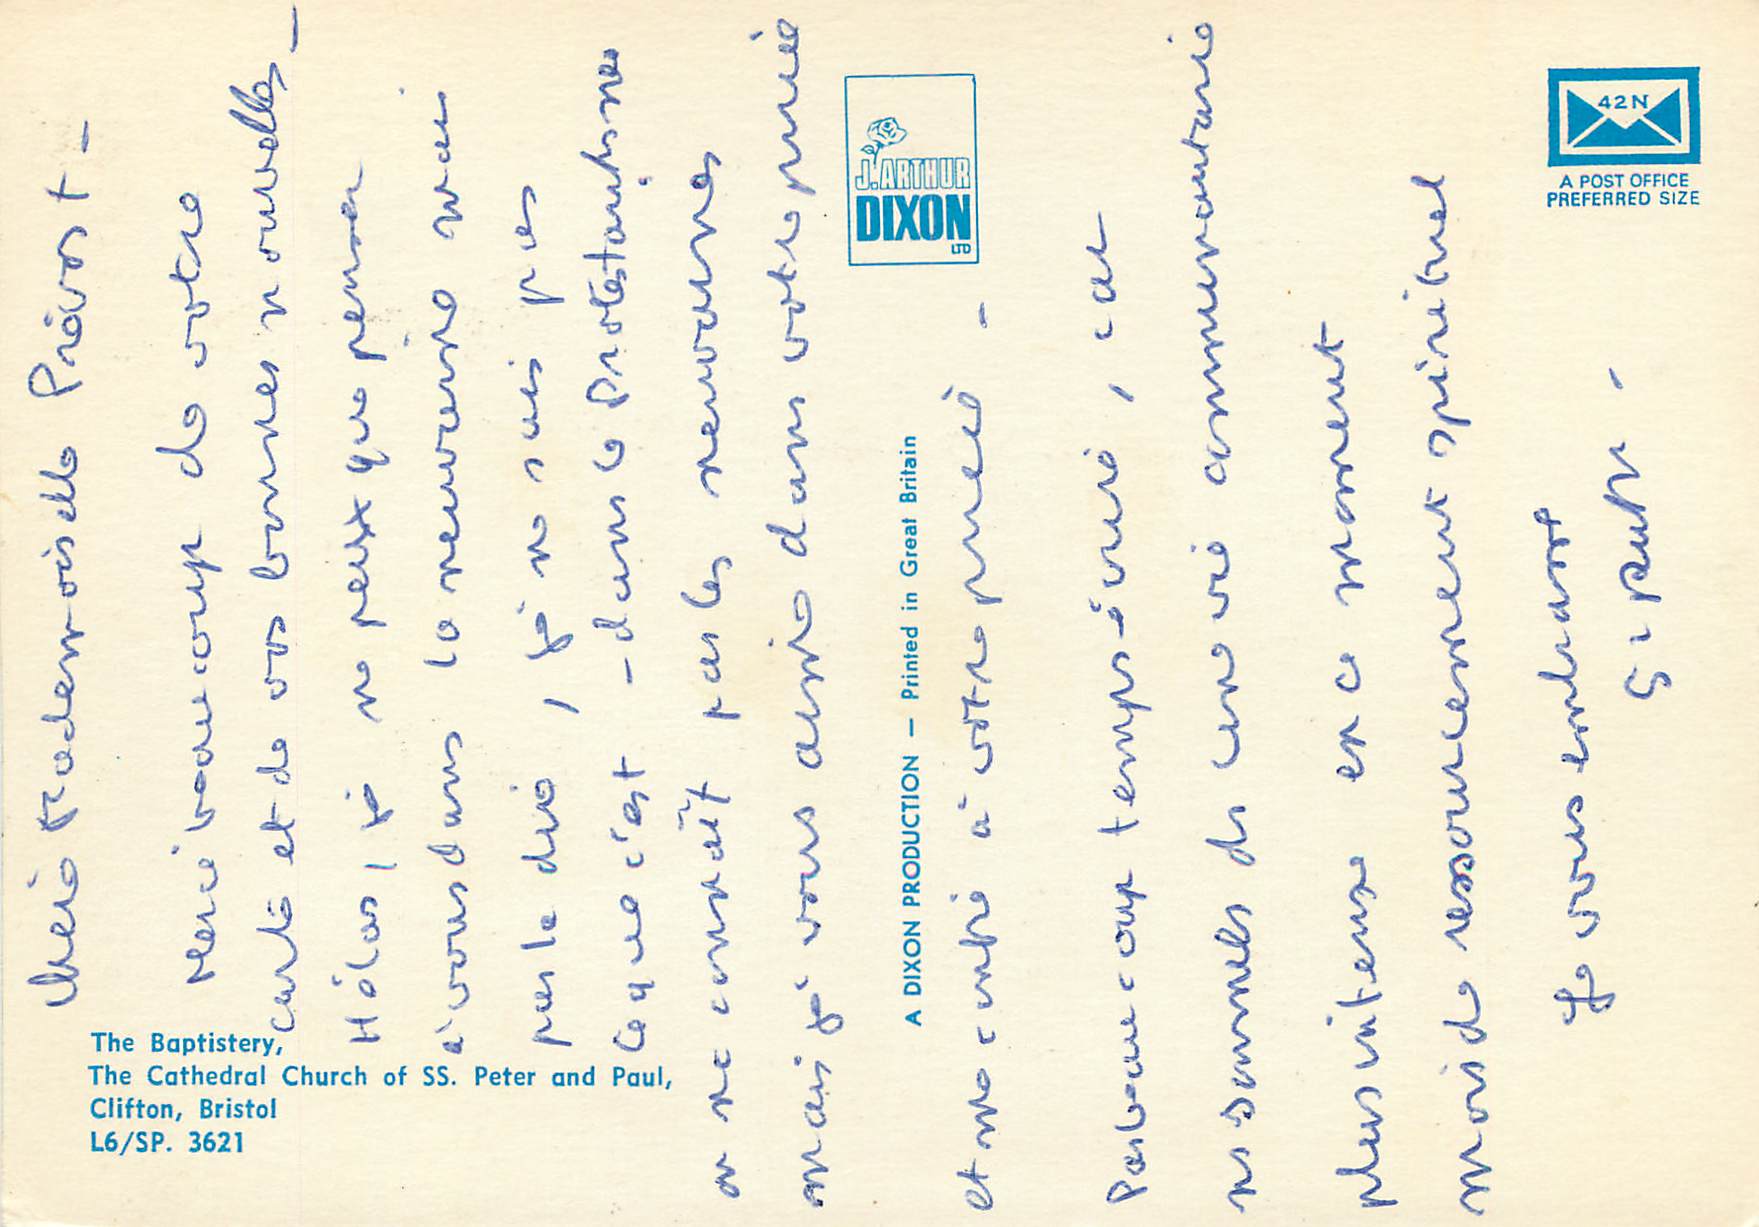 Chère Mademoiselle Prévost -
Merci beaucoup de votre
carte et de vos bonnes nouvelles -
Hélas, je ne peux que penser
à vous dans la neuvaine mais
pas la dire, je ne sais pas
ce que c'est - dans le Protestantisme
on ne connaît pas les neuvaines
mais je vous associe dans votre prière
et me confie à votre prière -
Pas beaucoup temps à vous, car
ns sommes ds une vie communautaire
plus intense en ce moment
mois de ressourcement spirituel
Je vous embrasse
The Baptistery,
The Cathedral Church of SS. Peter and Paul,
Clifton, Bristol
L6/SP. 3621
A DIXON PRODUCTION — Printed in Great Britain
J. ARTHUR
DIXON
LTD
42N
A POST OFFICE
PREFERRED SIZE